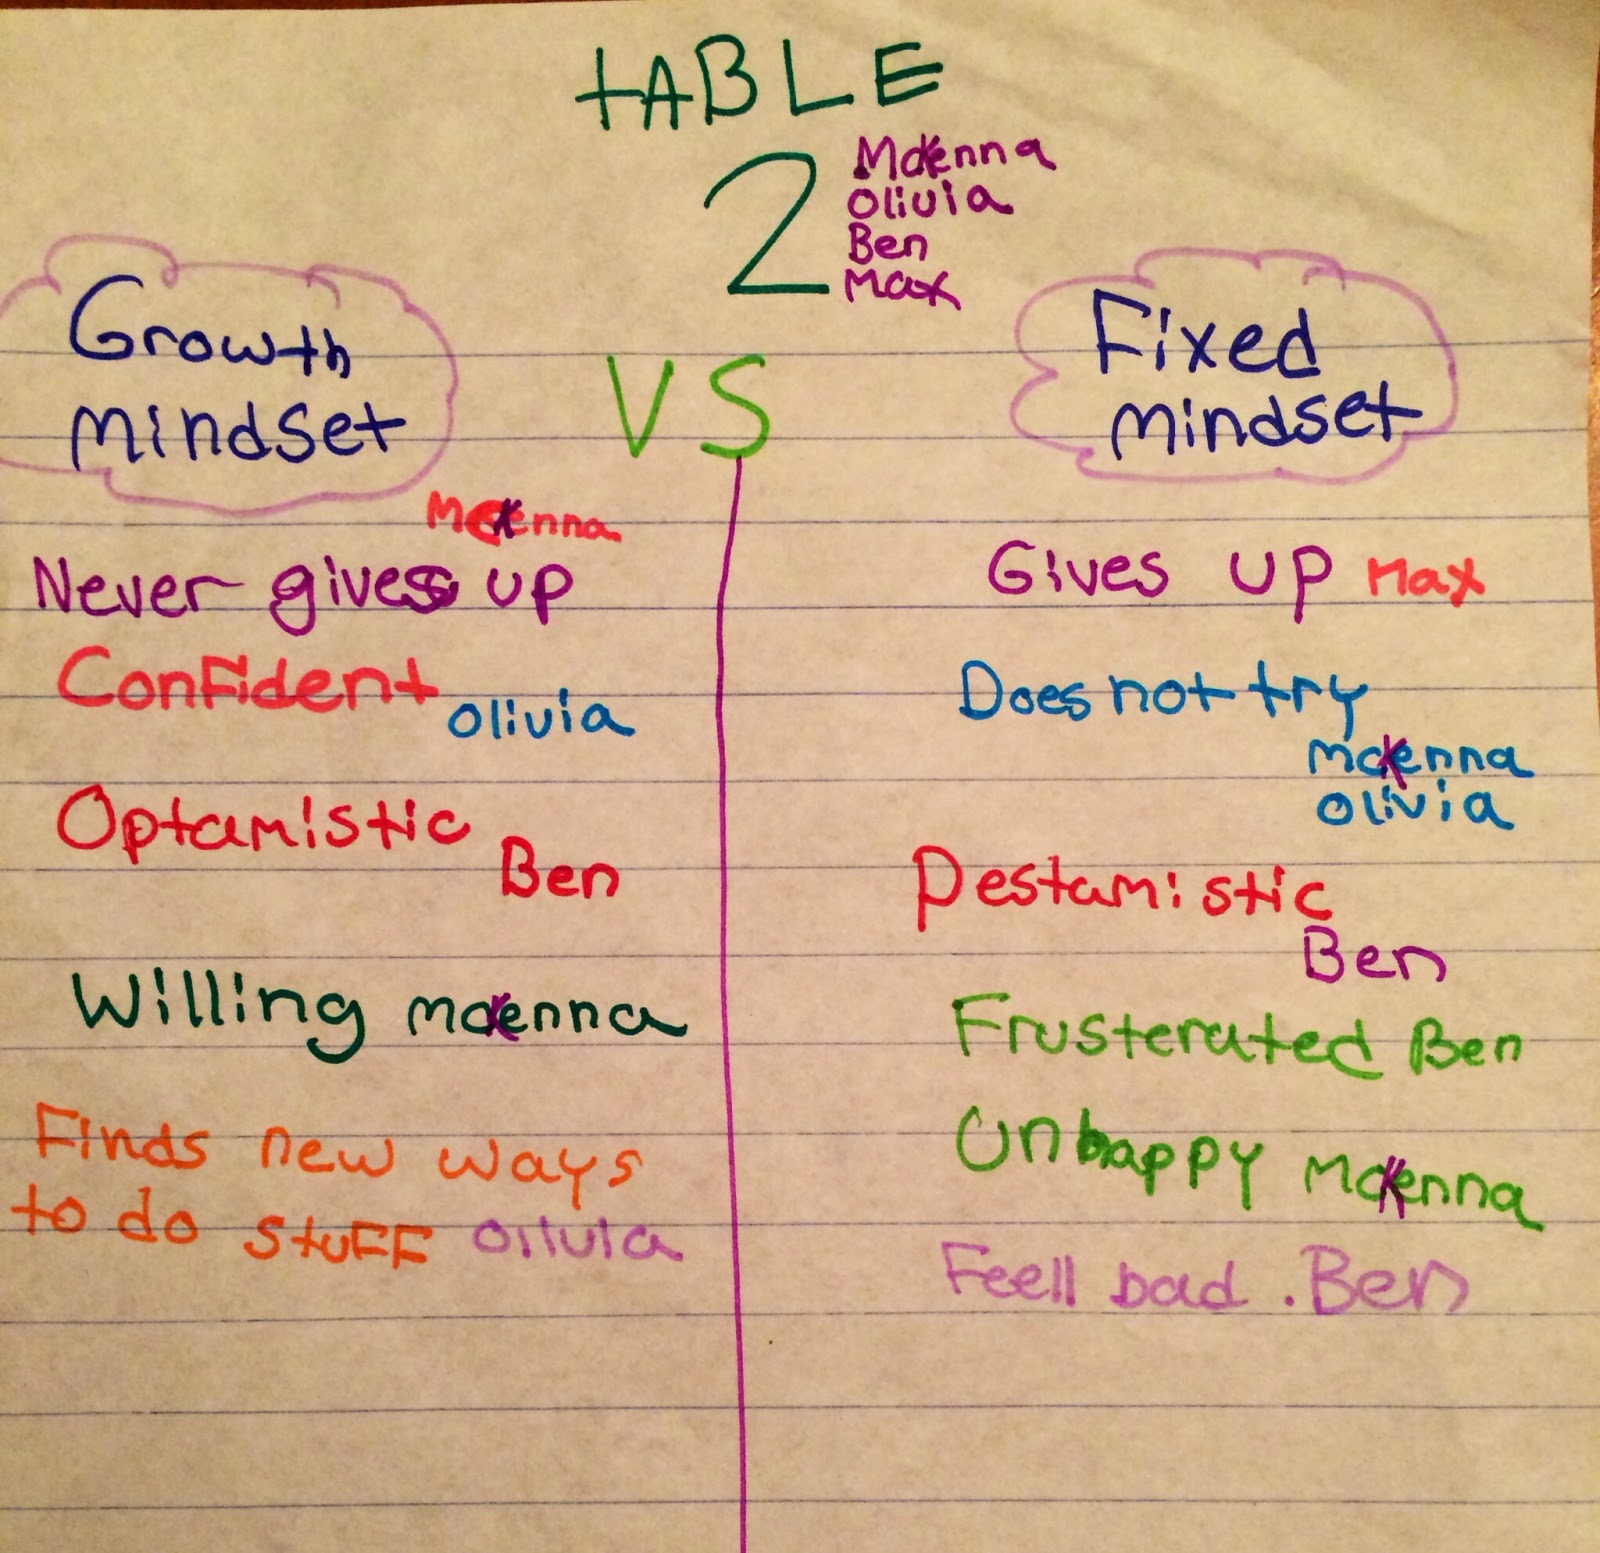 tABLE
2
McKenna
Olivia
Ben
Max
Growth
mindset
VS
Fixed
mindset
McKenna
Never gives up
Confident Olivia
Optamistic
Ben
Willing McKenna
Finds new ways
to do stuff Olivia
Gives up Max
Does not try
McKenna
Olivia
Pestamistic
Ben
Frusterated Ben
Unhappy McKenna
Feell bad . Ben